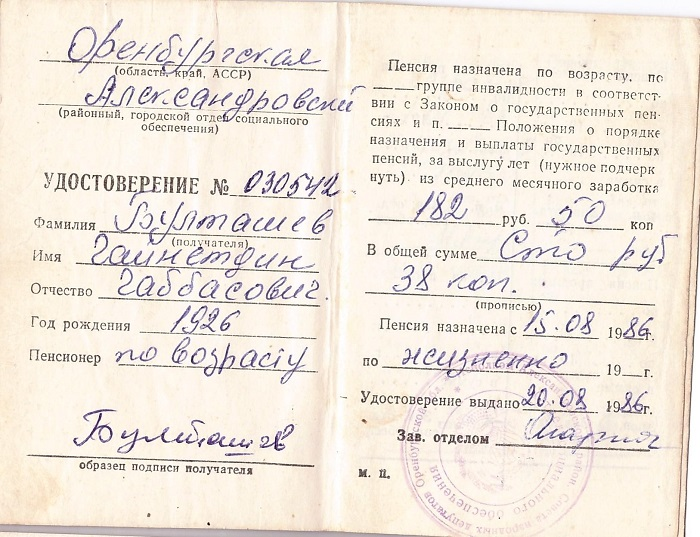 Оренбургская
(область, край, АССР)
Александровский
(районный, городской отдел социального
обеспечения)
УДОСТОВЕРЕНИЕ № 030542
Фамилия Булташев
(получателя)
Имя Гайнетдин
Отчество Габбасович.
Год рождения 1926
Пенсионер по возрасту
Булташев
образец подписи получателя
Пенсия назначена по возрасту, по
группе инвалидности в соответст-
вии с Законом о государственных пен-
сиях и п. Положения о порядке
назначения и выплаты государственных
пенсий, за выслугу лет (нужное подчерк
нуть) из среднего месячного заработка
182 руб. 50 коп
В общей сумме Сто руб
38 коп.
(прописью)
Пенсия назначена с 15.08 1986г.
по жизненно 19 г.
Удостоверение выдано 20.08 1986г.
Зав. отделом
М. П.